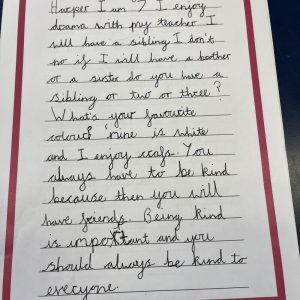 Harper I am 7 I enjoy
drama with my teacher I
will have a sibling I don't
no if I will have a bother
or a sister do you have a
sibling or two or three?
What's your favourite
colour? mine is white
and I enjoy crafs. You
always have to be kind
because then you will
have friends. Being kind
is important and you
should always be kind to
everyone.